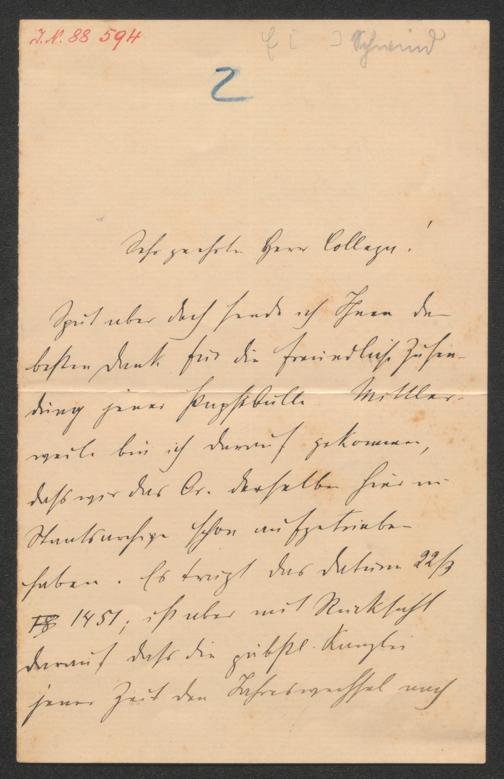 I.N. 88 594
E [ ] Schwind
2
Sehr geehrter Herr College!
Spät aber doch sende ich Ihnen den
besten Dank für die freundliche Zusen-
dung jener Papstbulle. Mittler-
weile bin ich darauf gekommen,
daß wir das Or. derselben hier im
Staatsarchive schon aufgetrieben
haben. Es trägt das Datum 22/3
1451; ist aber mit Rücksicht
darauf daß die päbstl. Kanzlei
jener Zeit den Jahreswechsel nach